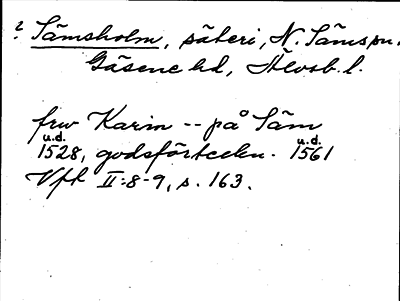 ? Sämsholm, säteri, N. Säms sn.
Gäsene hd, Älvsb. l.
fru Karin -- på Säm
u.d. u.d.
1528, godsförteckn. 1561
Vfl II:8-9, s. 163.